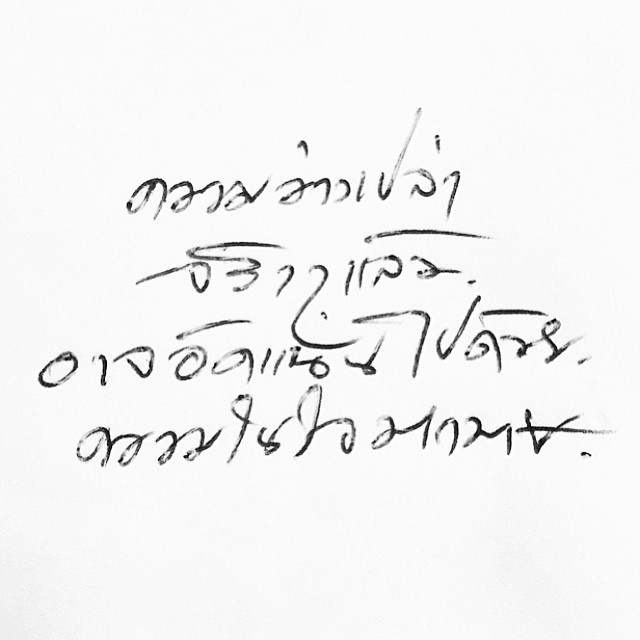 ความว่างเปล่า
จริงๆแล้ว.
อาจอัดแน่นไปด้วย.
ความในใจมากมาย.